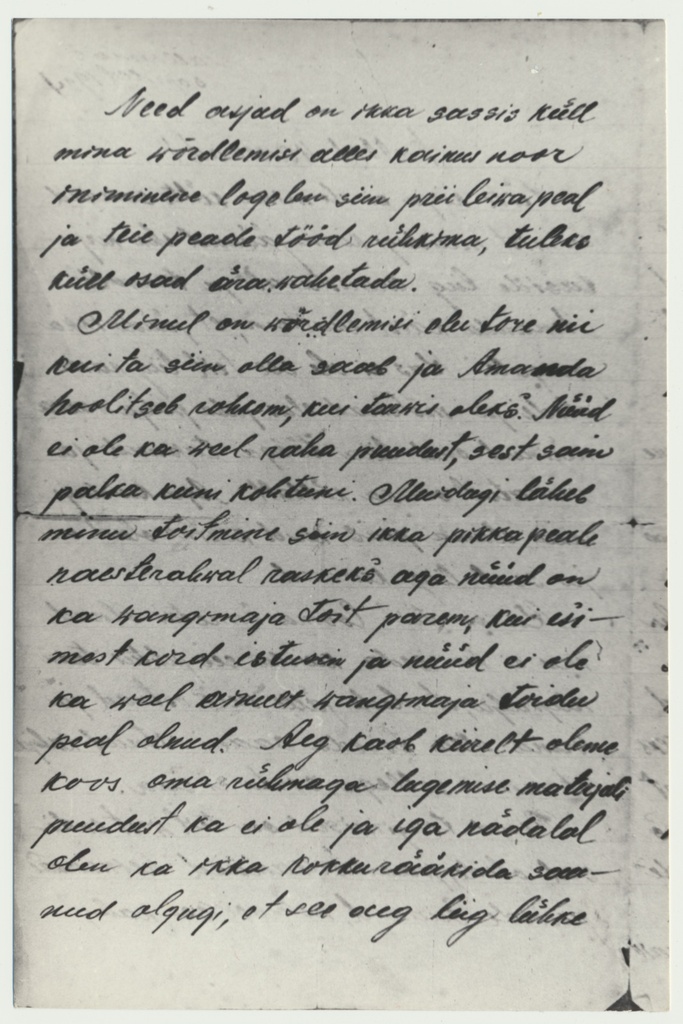 Need asjad on ikka sassis küll
mina wõrdlemisi alles kaunis noor
iniminene logelen siin prii leiwa peal
ja teie peade tööd rühkima, tuleks
küll osad ära wahetada.
Minul on wõrdlemisi elu tore nii
kui ta siin olla saab ja Amanda
hoolitseb rohkem, kui tarwis oleks. Nüüd
ei ole ka weel raha puudust, sest sain
palka kuni kohtuni. Muidugi läheb
minu toitmine siin ikka pikkapeale
naesterahwal raskeks aga nüüd on
ka wangimaja toit parem, kui esi-
mest kord istusin ja nüüd ei ole
ka weel ainult wangimaja toidu
peal olnud. Aeg kaob kiirelt oleme
koos oma rühmaga lugemise materjali
puudust ka ei ole ja iga nädalal
olen ka ikka kokkurääkida saa-
nud olgugi, et see aeg liig lühke